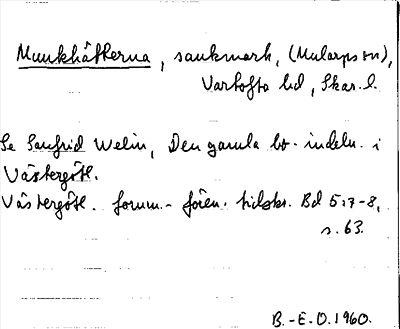 Munkhättorna, sankmark, (Mularps sn),
Vartofta hd, Skar. l.
Se Sanfrid Welin, Den gamla bo-indeln. i
Västergötl.
Västergötl. fornm.- fören. tidskr. Bd 5:7-8,
s. 63.
B.-E.O. 1960.